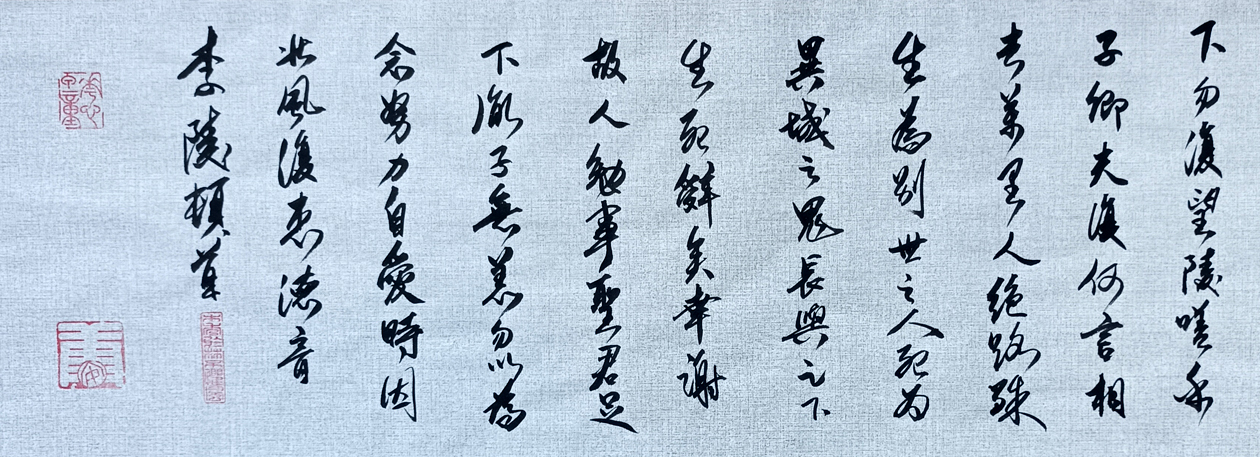 下勿復望陵嗟乎
子卿夫復何言相
去萬里人絕路殊
生為別世之人死為
異域之鬼長與足下
生死辭矣幸謝
故人勉事聖君足
下胤子無恙勿以為
念努力自愛時因
北風復惠德音
李陵頓首